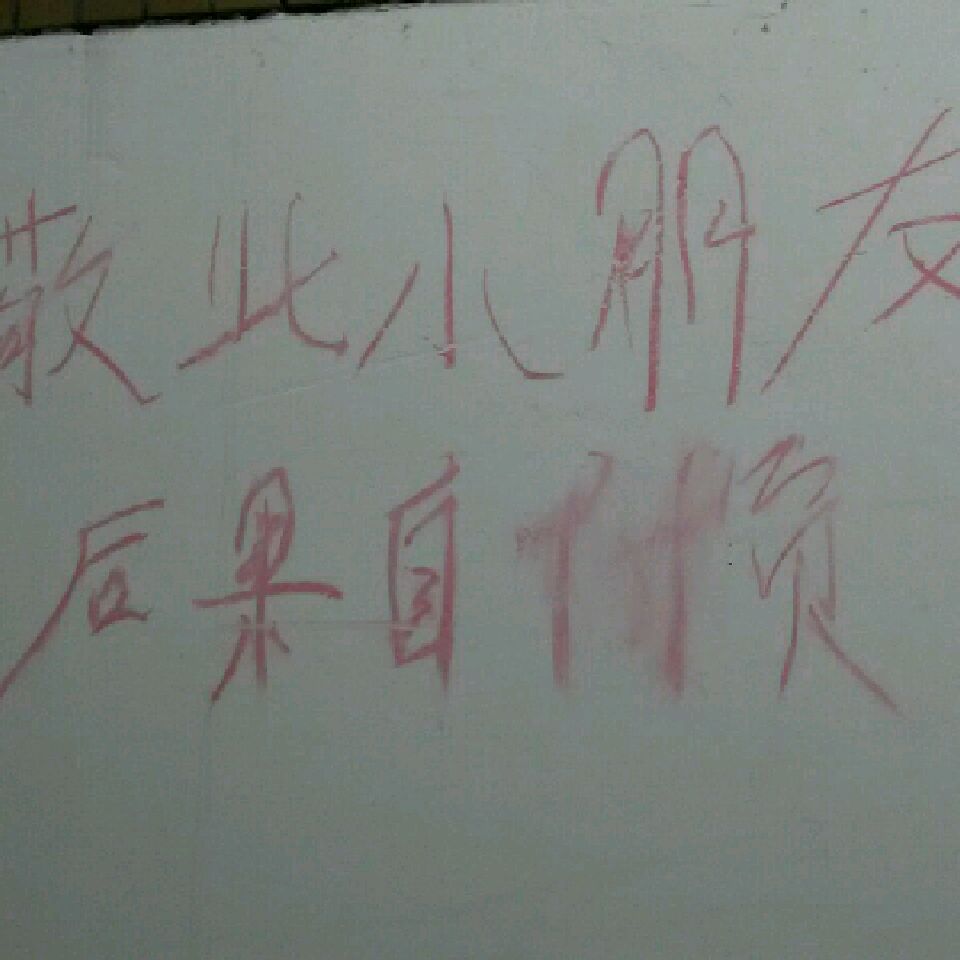 敬此小朋友
后果自负